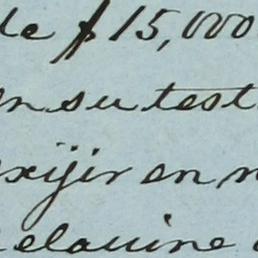 de $15,000
en su test
exijir en